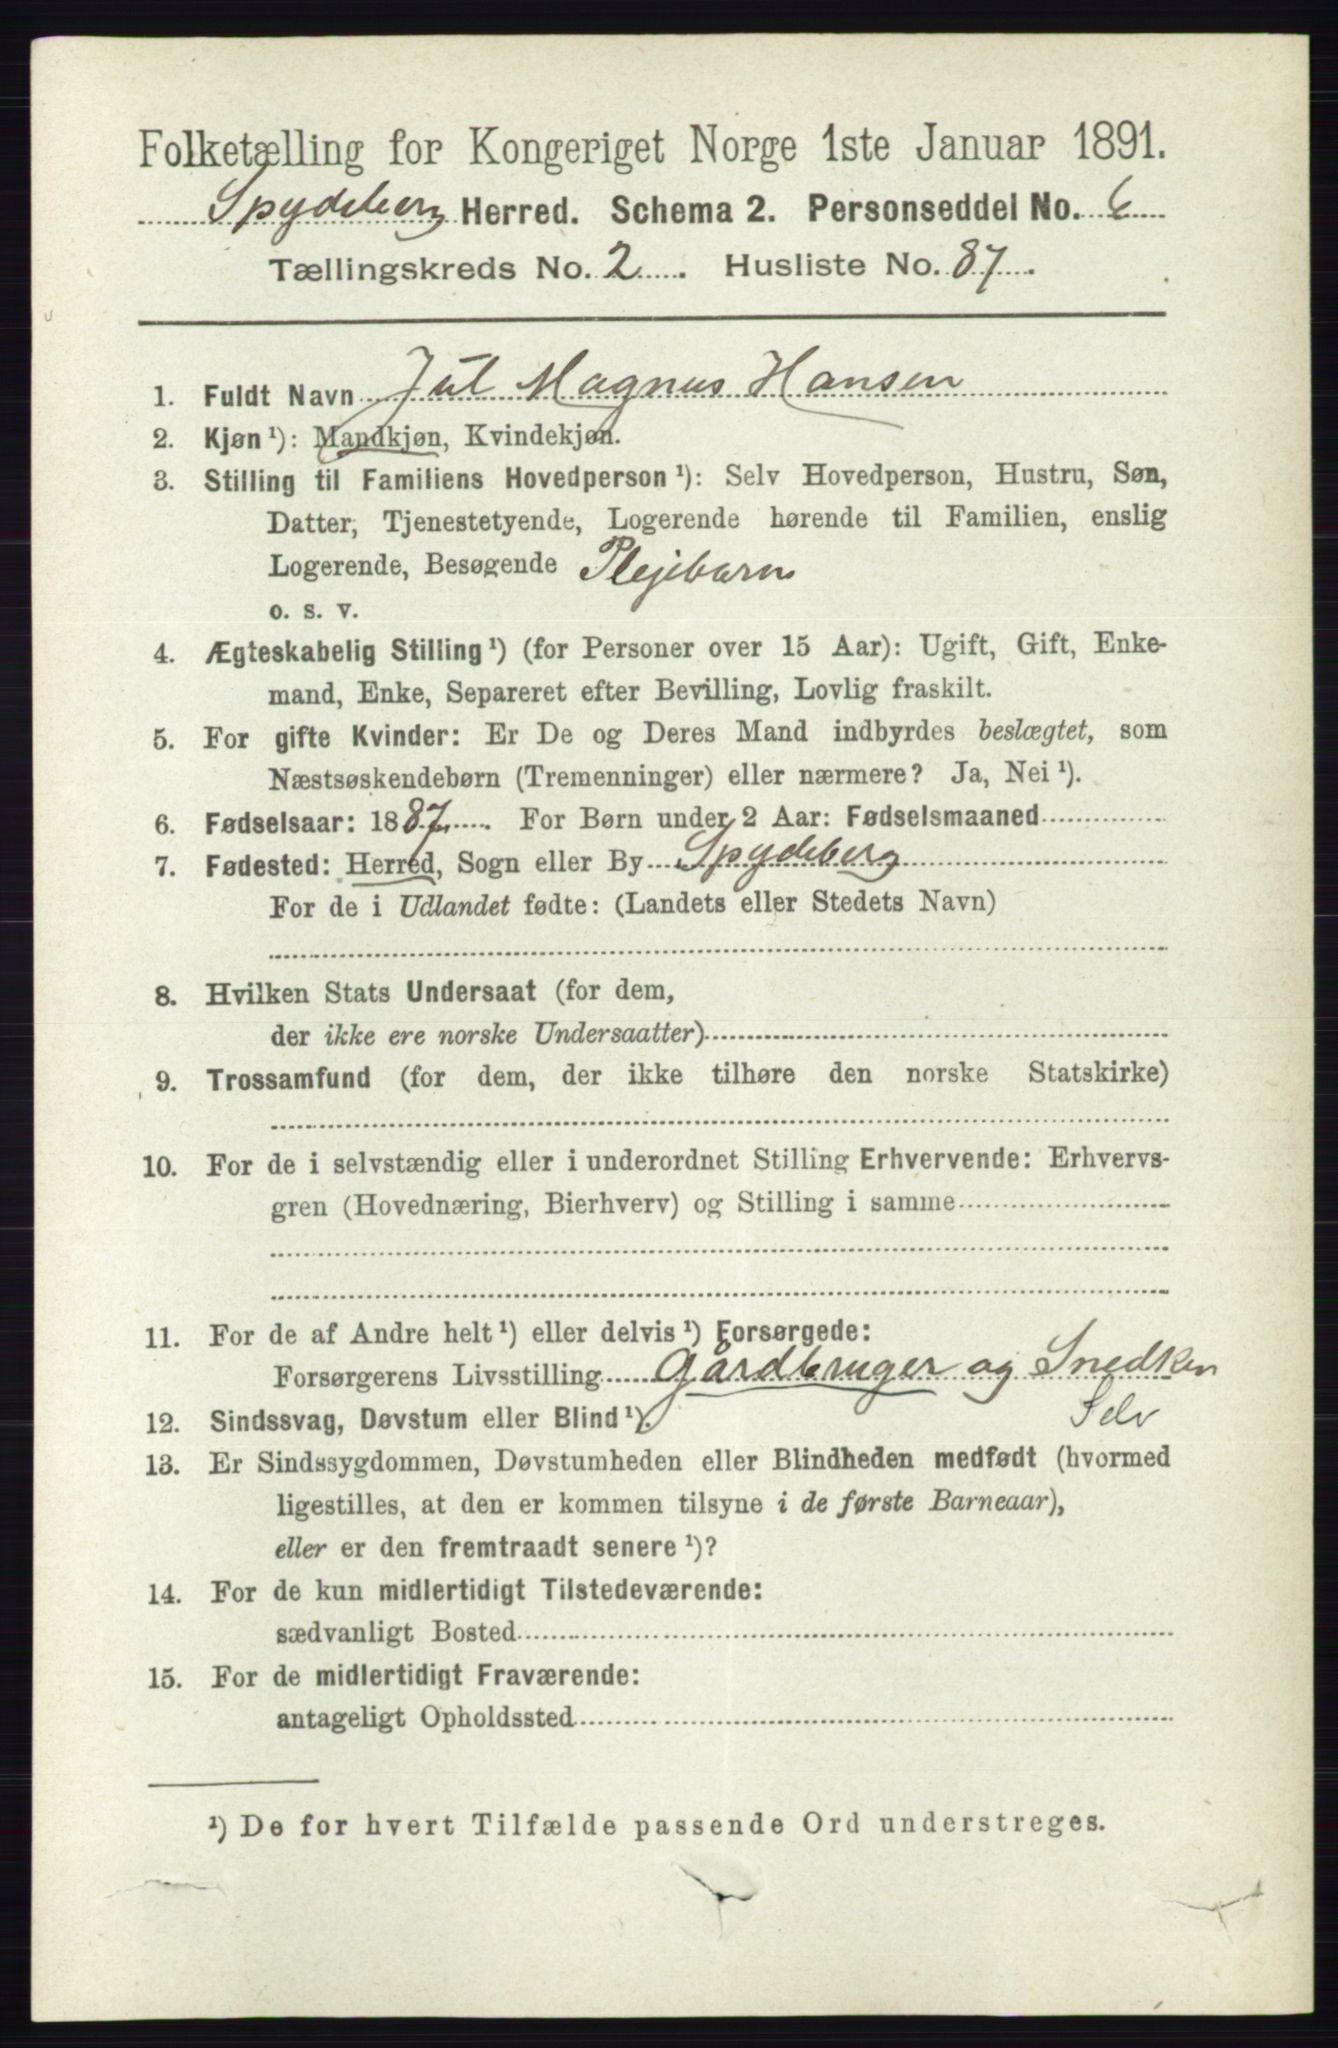 Folketælling for Kongeriget Norge 1ste Januar 1891.
Spydeberg Herred. Schema 2. Personseddel No. 6
Tællingskreds No. 2. Husliste No. 87.
1. Fuldt Navn Jul Magnus Hansen
2. Kjøn¹): Mandkjøn, Kvindekjøn.
3. Stilling til Familiens Hovedperson¹): Selv Hovedperson, Hustru, Søn,
Datter, Tjenestetyende, Logerende hørende til Familien, enslig
Logerende, Besøgende Plejebarn
o. s. v.
4. Ægteskabelig Stilling¹) (for Personer over 15 Aar): Ugift, Gift, Enke-
mand, Enke, Separeret efter Bevilling, Lovlig fraskilt.
5. For gifte Kvinder: Er De og Deres Mand indbyrdes beslægtet, som
Næstsøskendebørn (Tremenninger) eller nærmere? Ja, Nei¹).
6. Fødselsaar: 1887. For Børn under 2 Aar: Fødselsmaaned
7. Fødested: Herred, Sogn eller By Spydeberg
For de i Udlandet fødte: (Landets eller Stedets Navn)
8. Hvilken Stats Undersaat (for dem,
der ikke ere norske Undersaatter)
9. Trossamfund (for dem, der ikke tilhøre den norske Statskirke)
10. For de i selvstændig eller i underordnet Stilling Erhvervende: Erhvervs-
gren (Hovednæring, Bierhverv) og Stilling i samme
11. For de af Andre helt¹) eller delvis¹) Forsørgede:
Forsørgerens Livsstilling Gårdbruger og Snedker
12. Sindssvag, Døvstum eller Blind¹). Selv
13. Er Sindssygdommen, Døvstumheden eller Blindheden medfødt (hvormed
ligestilles, at den er kommen tilsyne i de første Barneaar),
eller er den fremtraadt senere¹)?
14. For de kun midlertidigt Tilstedeværende:
sædvanligt Bosted
15. For de midlertidigt Fraværende:
antageligt Opholdssted
¹) De for hvert Tilfælde passende Ord understreges.